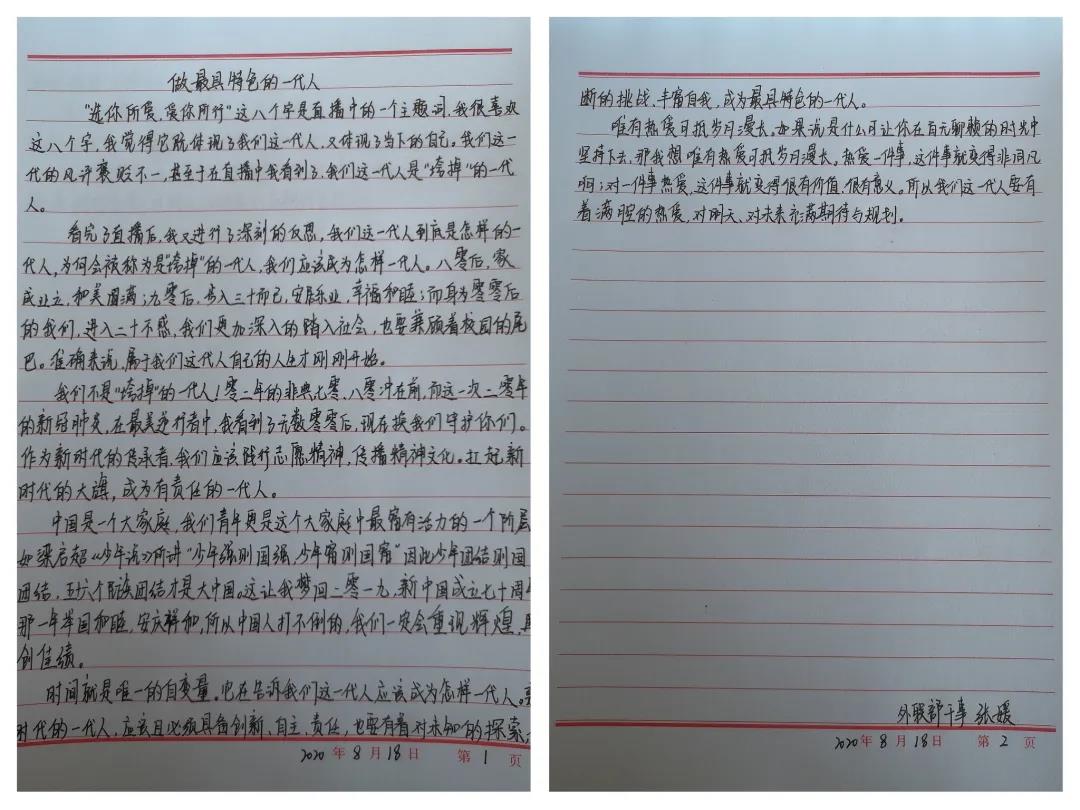 做最具特色的一代人
"选你所爱,爱你所行"这八个字是直播中的一个主题词,我很喜欢
这八个字,我觉得它既体现了我们这一代人,又体现了当下的自己。我们这一
代的风评褒贬不一,甚至于在直播中我看到了,我们这一代人是"垮掉"的一代
人。
看完了直播后,我又进行了深刻的反思,我们这一代人到底是怎样的一
代人,为何会被称为是"垮掉"的一代人,我们应该成为怎样一代人。八零后,家
成业立,和美圆满;九零后,步入三十而已,安居乐业,幸福和睦;而身为零零后
的我们,进入二十不惑,我们更加深入的踏入社会,也要兼顾着校园的尾
巴。准确来说,属于我们这代人自己的人生才刚刚开始。
我们不是"垮掉"的一代人!零二年的非典,七零、八零冲在前,而这一次二零年
的新冠肺炎,在最美逆行者中,我看到了无数零零后,现在换我们守护你们。
作为新时代的传承者,我们应该践行志愿精神,传播精神文化。扛起新
时代的大旗,成为有责任的一代人。
中国是一个大家庭,我们青年更是这个大家庭中最富有活力的一个阶层
如梁启超《少年说》所讲"少年强则国强,少年富则国富"因此少年团结则国
团结,五十六个民族团结才是大中国。这让我梦回二零一九,新中国成立七十周年
那一年举国和睦,安庆祥和,所以中国人打不倒的,我们一定会重现辉煌,再
创佳绩。
时间就是唯一的自变量。它在告诉我们这一代人应该成为怎样一代人。
时代的一代人,应该且必须具备创新、自主、责任,也要有着对未知的探索
2020年8月18日 第1页
断的挑战、丰富自我,成为最具特色的一代人。
唯有热爱可抵岁月漫长。如果说是什么可让你在百无聊赖的时光中
坚持下去,那我想唯有热爱可抵岁月漫长。热爱一件事,这件事就变得非同凡
响;对一件事热爱,这件事就变得很有价值、很有意义。所以我们这一代人要有
着满腔的热爱,对明天、对未来充满期待与规划。
外联部干事 张媛
2020年8月18日 第2页